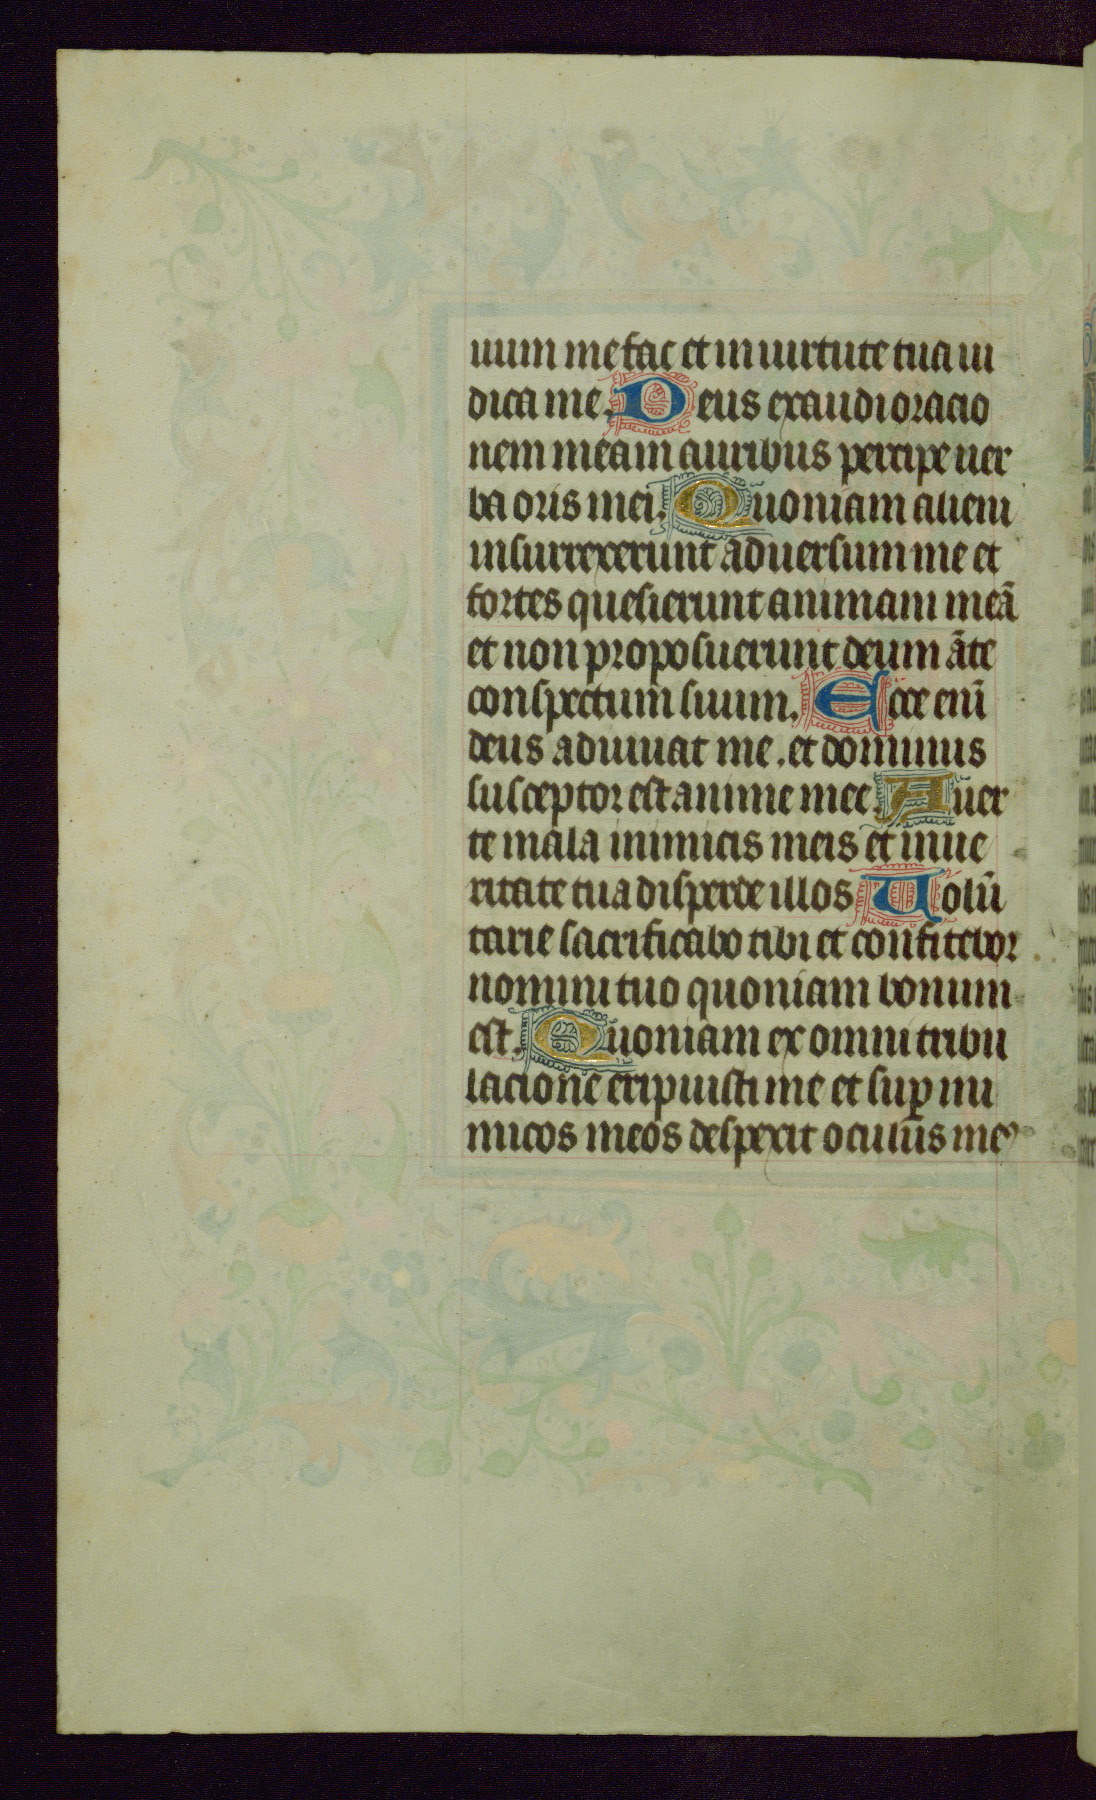 uum me fac et in uirtute tua iu
dica me. Deus exaudi oracio
nem meam auribus percipe uer
ba oris mei. Quoniam alieni
insurrexerunt aduersum me et
fortes quesierunt animam meā
et non proposuerunt deum āte
conspectum suum. Ecce enī
deus adiuuat me. et dominus
susceptor est anime mee. Auer
te mala inimicis meis et in ue
ritate tua disperde illos Uolū
tarie sacrificabo tibi et confitebor
nomini tuo quoniam bonum
est. Quoniam ex omni tribu
lacione eripuisti me et suꝑ ini
micos meos despexit oculus meꝰ